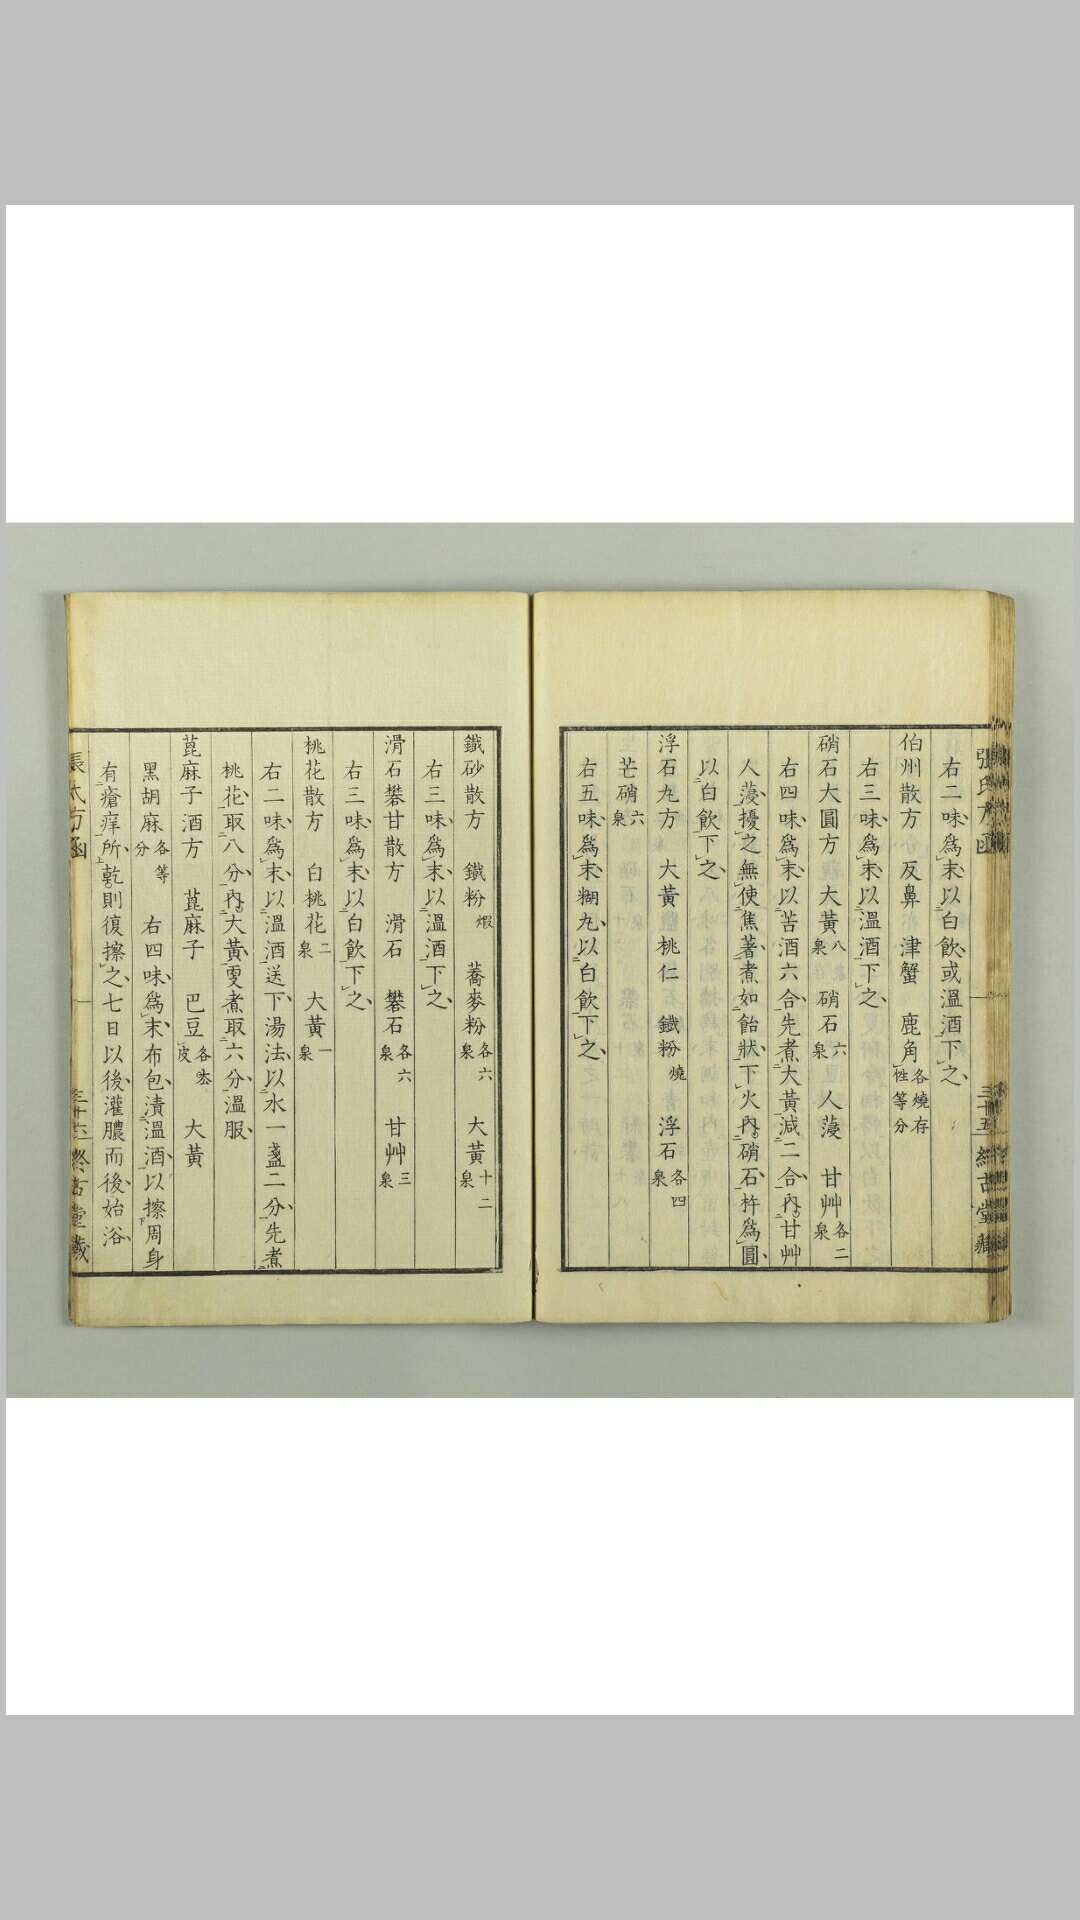 右二味爲末以白飲或溫酒下之
伯州散方 反鼻 津蟹 鹿角各燒存性等分
右三味爲末以溫酒下之
硝石大圓方 大黃八泉 硝石六泉 人蓡 甘艸各二泉
右四味爲末以苦酒六合先煮大黃減二合內甘艸
人蓡擾之無使焦著煮如飴狀下火內硝石杵爲圓
以白飲下之
浮石丸方 大黃 桃仁 鐵粉燒 浮石各四泉
芒硝六泉
右五味爲末糊丸以白飲下之
張氏方函 三十五 終古堂藏
鐵砂散方 鐵粉煆 蕎麥粉各六泉 大黃十二泉
右三味爲末以溫酒下之
滑石礬甘散方 滑石 礬石各六泉 甘艸三泉
右三味爲末以白飲下之
桃花散方 白桃花二泉 大黃一泉
右二味爲末以溫酒送下湯法以水一盞二分先煮
桃花取八分內大黃更煮取六分溫服
萞麻子酒方 萞麻子 巴豆各去皮 大黃
黑胡麻各等分 右四味爲末布包漬溫酒以擦周身
有瘡痒所乾則復擦之七日以後灌膿而後始浴
張氏方函 三十六 終古堂藏